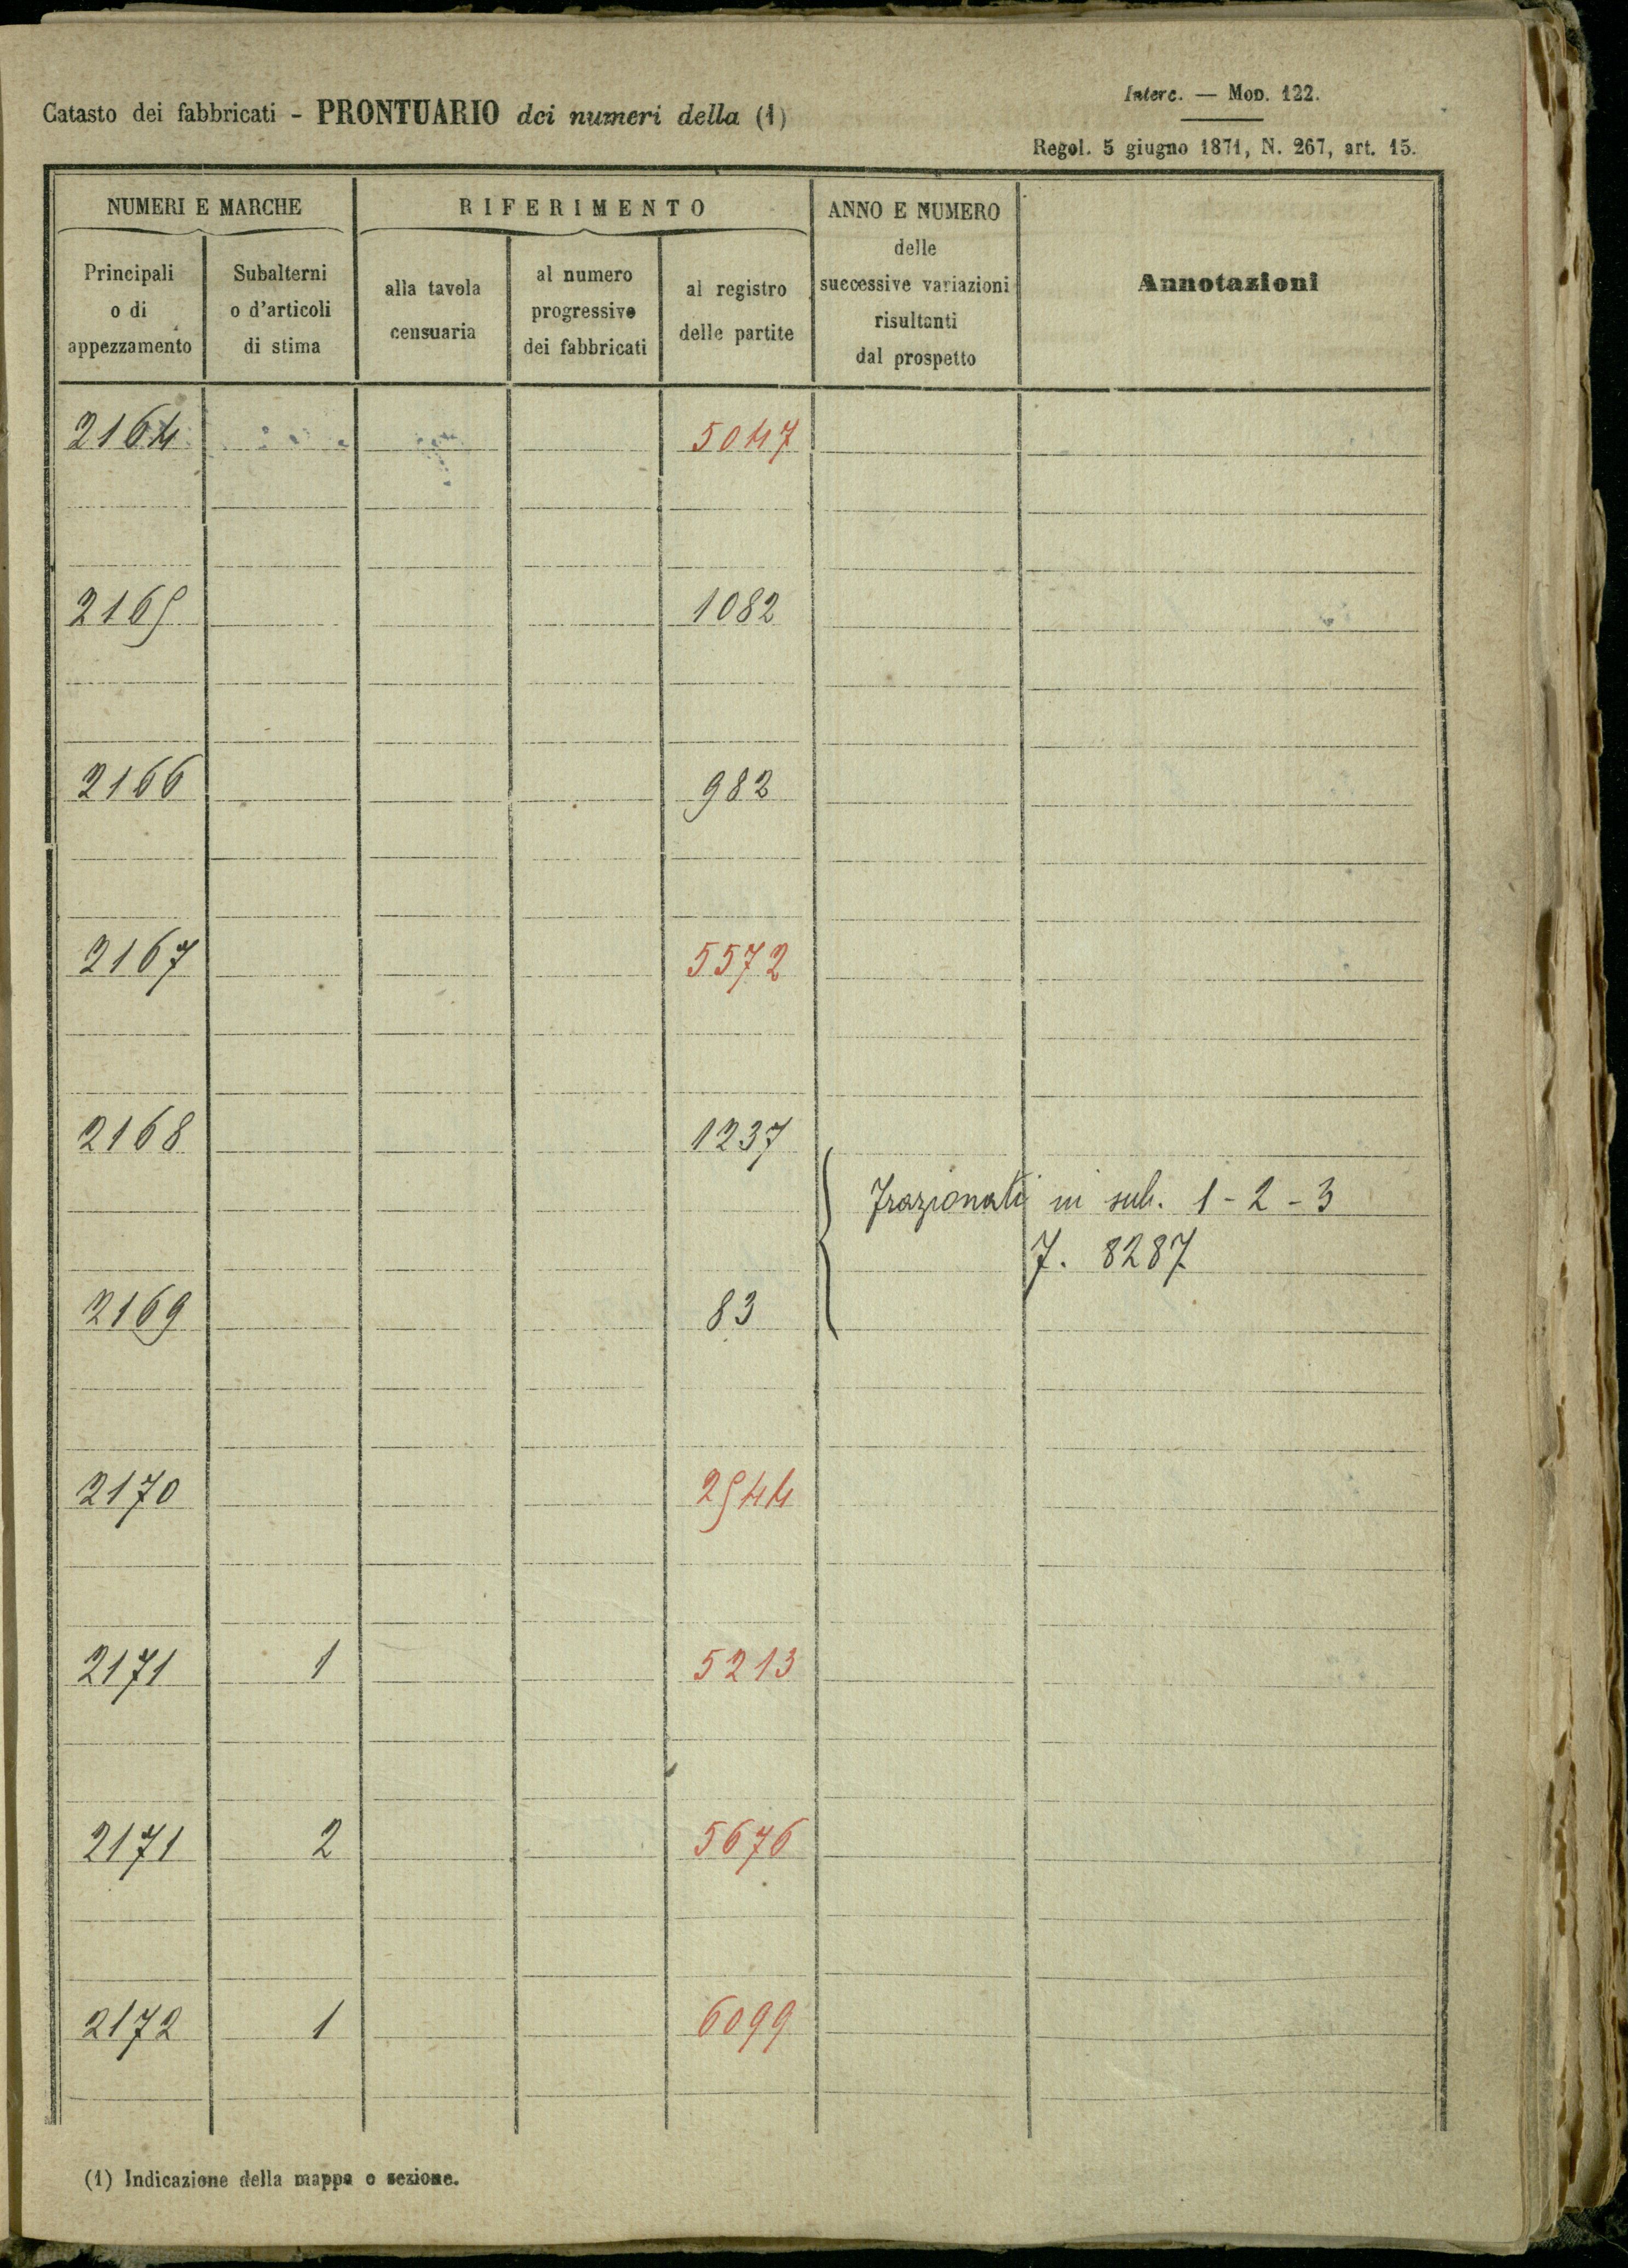 Catasto dei fabbricati - PRONTUARIO dei numeri della (1)
Interc. — Mod. 122.
Regol. 5 giugno 1871, N. 267, art. 15.
NUMERI E MARCHE
RIFERIMENTO
ANNO E NUMERO
delle
successive variazioni
risultanti
dal prospetto
Annotazioni
Principali
o di
appezzamento
Subalterni
o d'articoli
di stima
alla tavola
censuaria
al numero
progressivo
dei fabbricati
al registro
delle partite
2164 5047
2165 1082
2166 982
2167 5572
2168 1237
Frazionati in sub. 1 - 2 - 3
7. 8287
2169 83
2170 2544
2171 1 5213
2171 2 5676
2172 1 6099
(1) Indicazione della mappa o sezione.